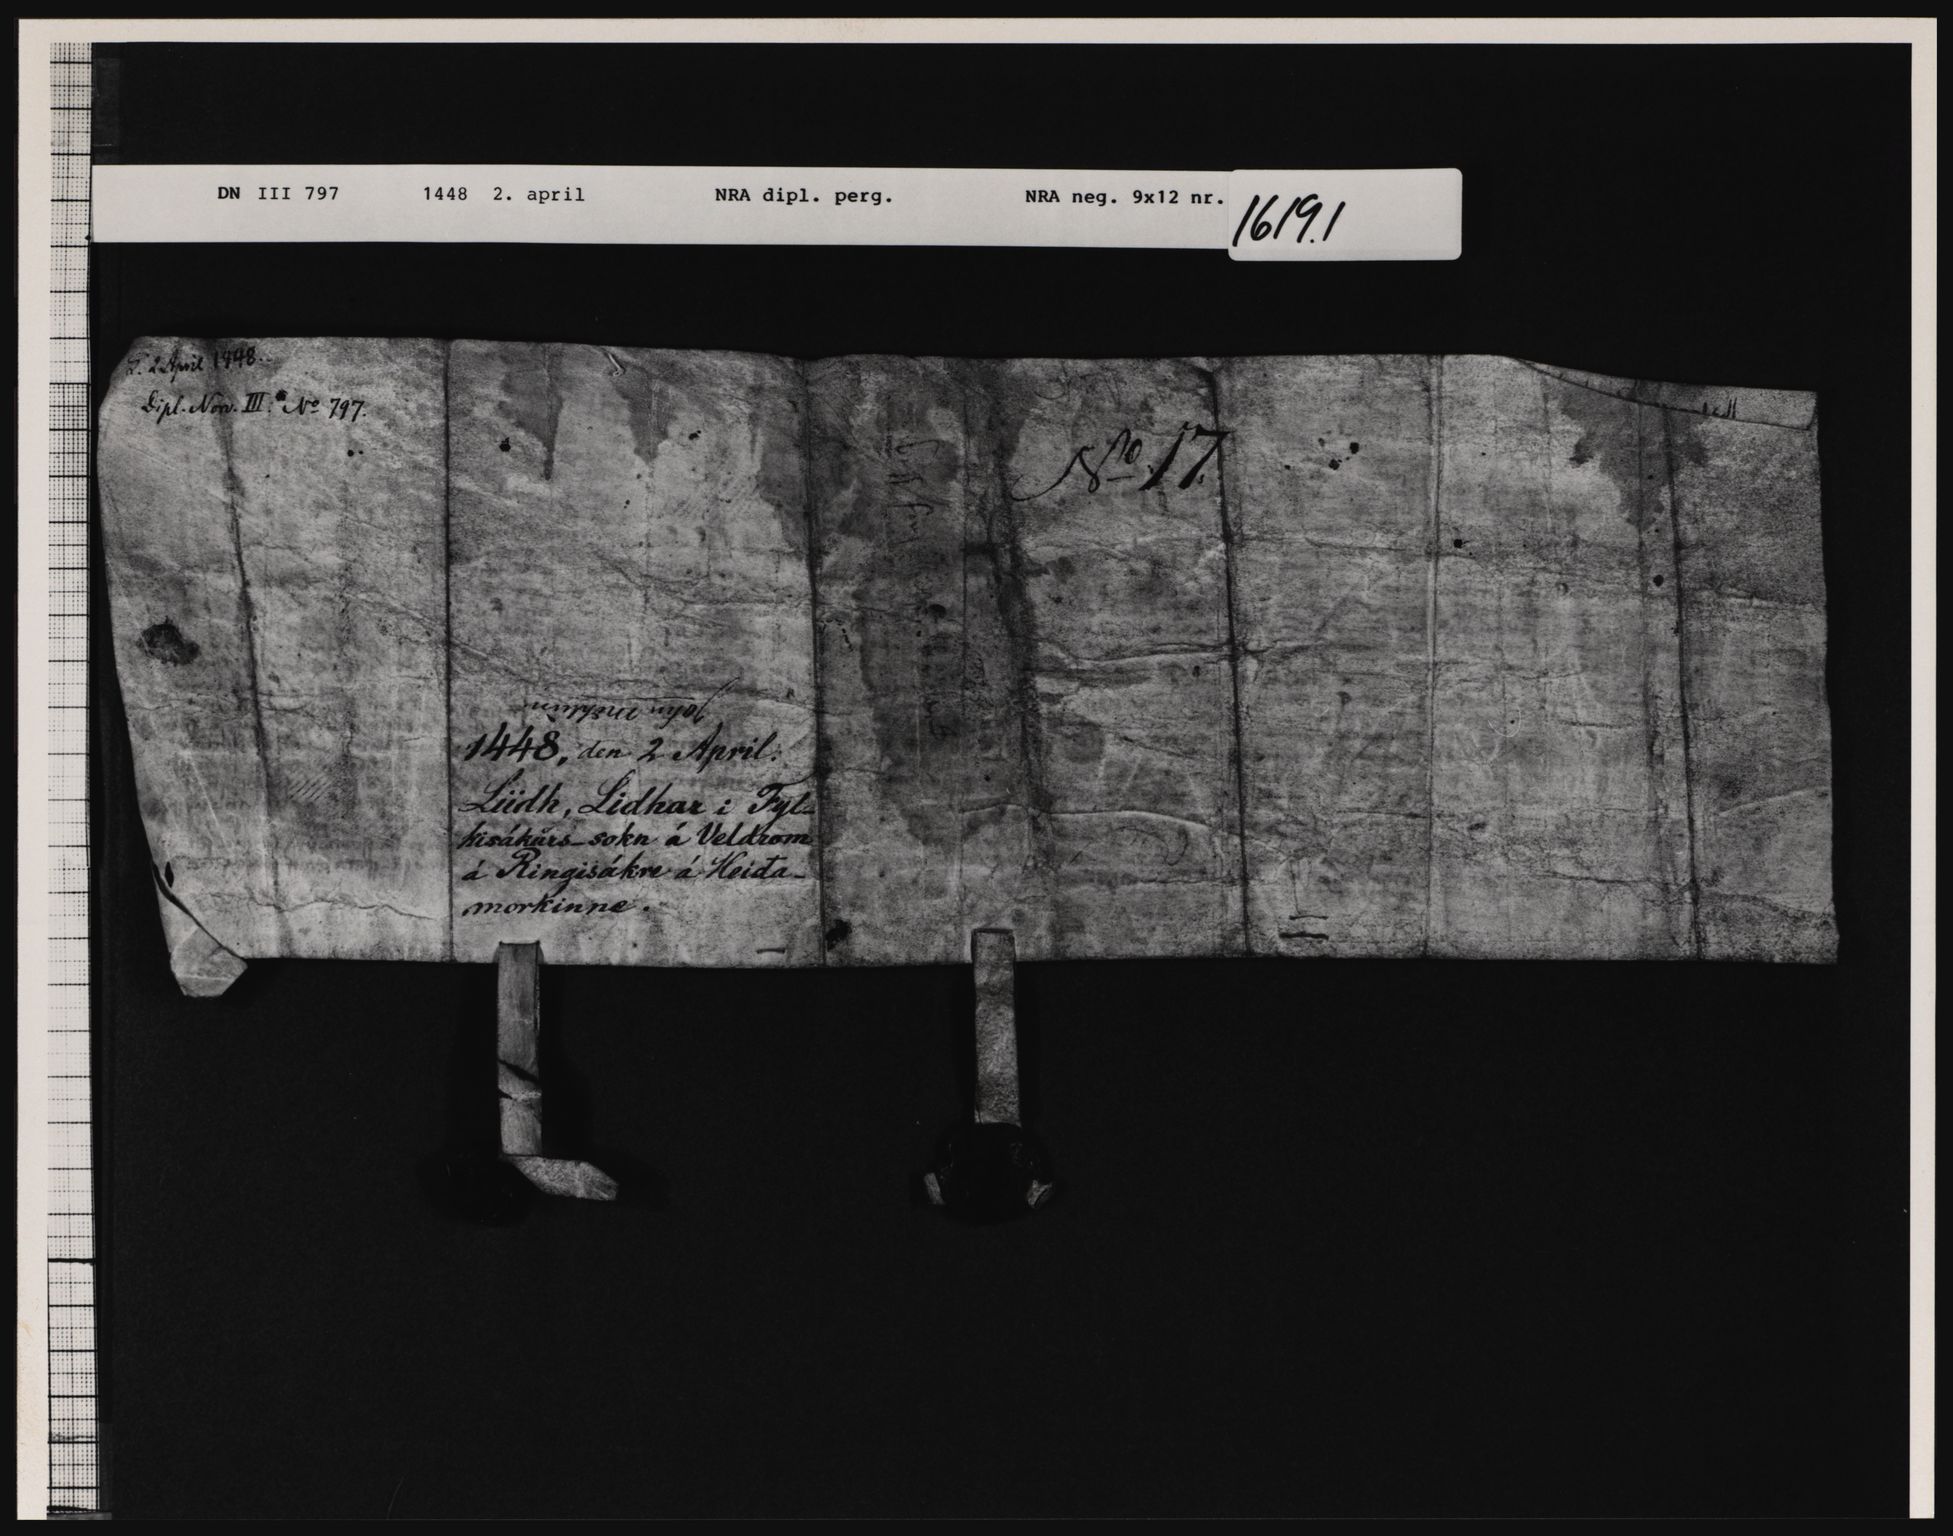 DN III 797 1448 2. april NRA dipl. perg. NRA neg. 9x12 nr. 1619.1
D. 2 April 1448.
Dipl. Norv. III. No 797.
No 17.
1448, den 2 April.
Liidh, Lidhar i Fyl-
kisákŭrs-sokn á Veldrom
á Ringisákre á Heiđa-
morkinne.